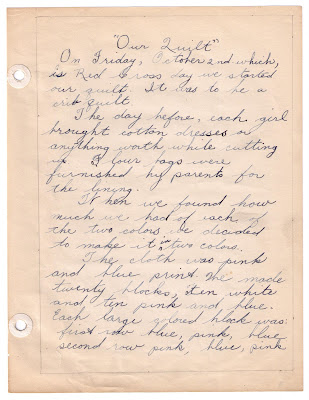 "Our Quilt"
On Friday, October 2nd which,
is Red Cross day we started
our quilt. It was to be a
crib quilt.
The day before, each girl
brought cotton dresses or
anything worth while cutting
up. Flour bags were
furnished by parents for
the lining.
When we found how
much we had of each of
the two colors we decided
to make it in two colors.
The cloth was pink
and blue print. We made
twenty blocks, ten white
and ten pink and blue.
Each large colored block was:
first row blue, pink, blue
second row pink, blue, pink